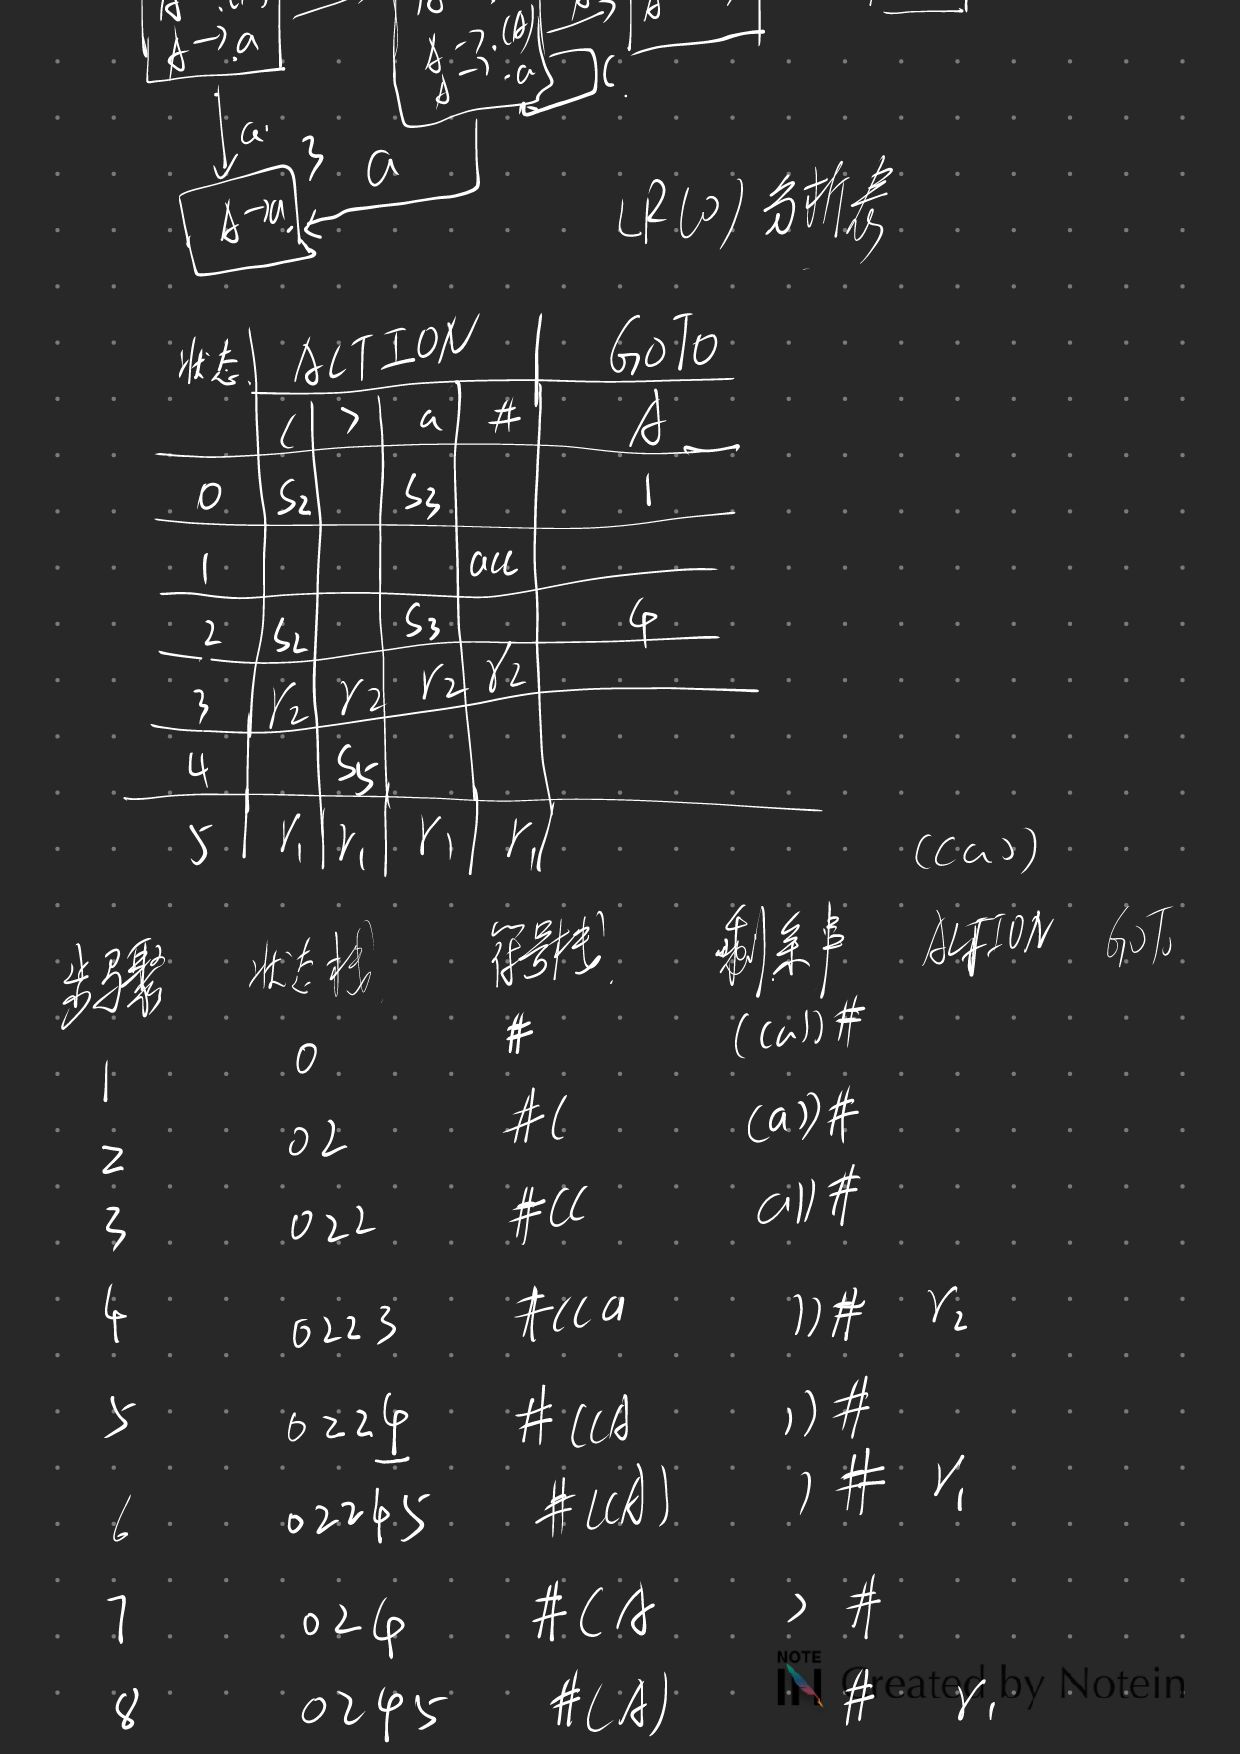 A→.a
A→.(A)
A→.a
(
a
3
a
A→a.
LR(0)分析表
状态 ACTION GOTO
( ) a # A
0 S2 S3 1
1 acc
2 S2 S3 4
3 r2 r2 r2 r2
4 S5
5 r1 r1 r1 r1
((a))
步骤 状态栈 符号栈 剩余串 ACTION GOTO
1 0 # ((a))#
2 02 #( (a))#
3 022 #(( a))#
4 0223 #((a ))# r2
5 0224 #((A ))#
6 02245 #((A) )# r1
7 024 #(A )#
8 0245 #(A) # r1
NOTE IN Created by Notein